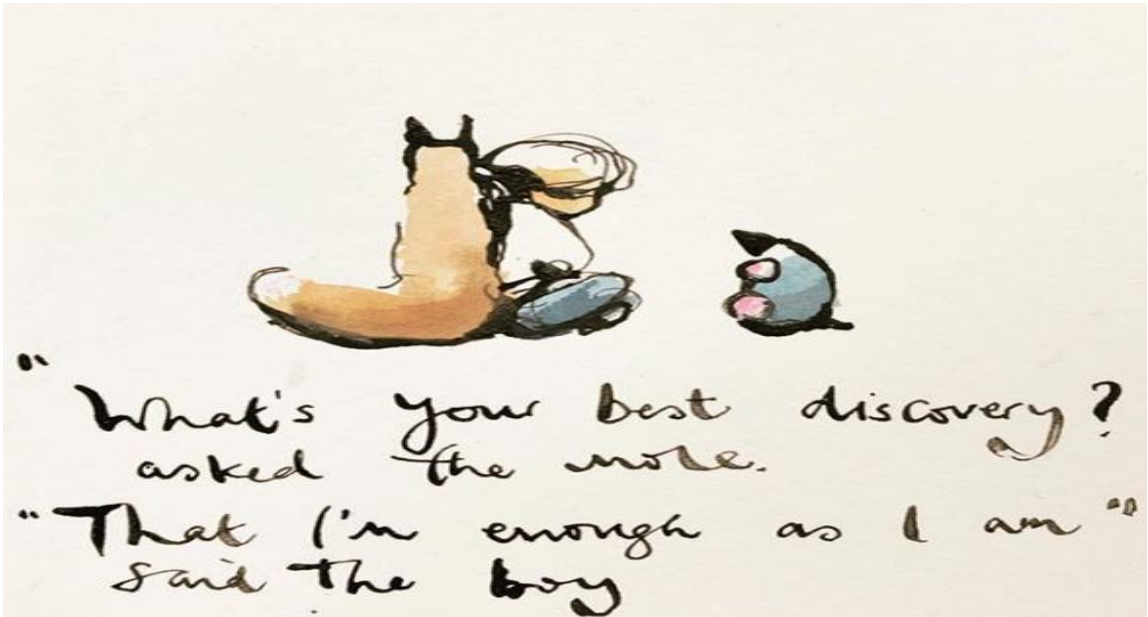 "What's your best discovery?
asked the mole.
"That I'm enough as I am"
said the boy